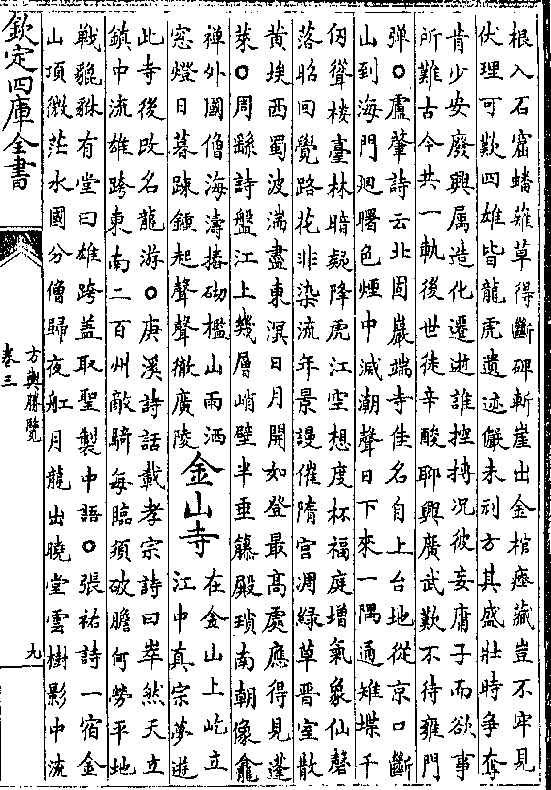 根入石窟蟠薙草得斷碑斬崖出金棺瘞藏豈不牢見
伏理可歎四雄皆龍虎遺迹儼未刓方其盛壯時爭奪
昔少安廢興属造化遷逝誰控摶况彼妄庸子而欲事
所難古今共一軌後世徒辛酸聊興廣武歎不待雍門
彈○盧肇詩云北固巖端寺佳名自上台地從京口斷
山到海門廻曙色煙中滅潮聲日下來一隅通雉堞千
仞聳樓臺林暗疑降虎江空想度杯福庭增氣象仙磬
落昭回覺路花非染流年景謾催隋宫凋綠草晋室散
黄埃西蜀波湍盡東溟日月開如登最高處應得見蓬
萊○周繇詩盤江上幾層峭壁半垂籐殿瑣南朝像龕
禪外國僧海濤摏砌檻山雨洒
窓燈日暮踈鍾起聲聲徹廣陵
金山寺
在金山上屹立
江中真宗夢遊
此寺後改名龍游○庚溪詩話載孝宗詩曰崒然天立
鎮中流雄跨東南二百州敵騎每臨須破膽何勞平地
戰貔貅有堂曰雄跨盖取聖製中語○張祐詩一宿金
山頂微茫水國分僧歸夜舡月龍出曉堂雲樹影中流
欽定四庫全書
方輿勝覽
卷三
九